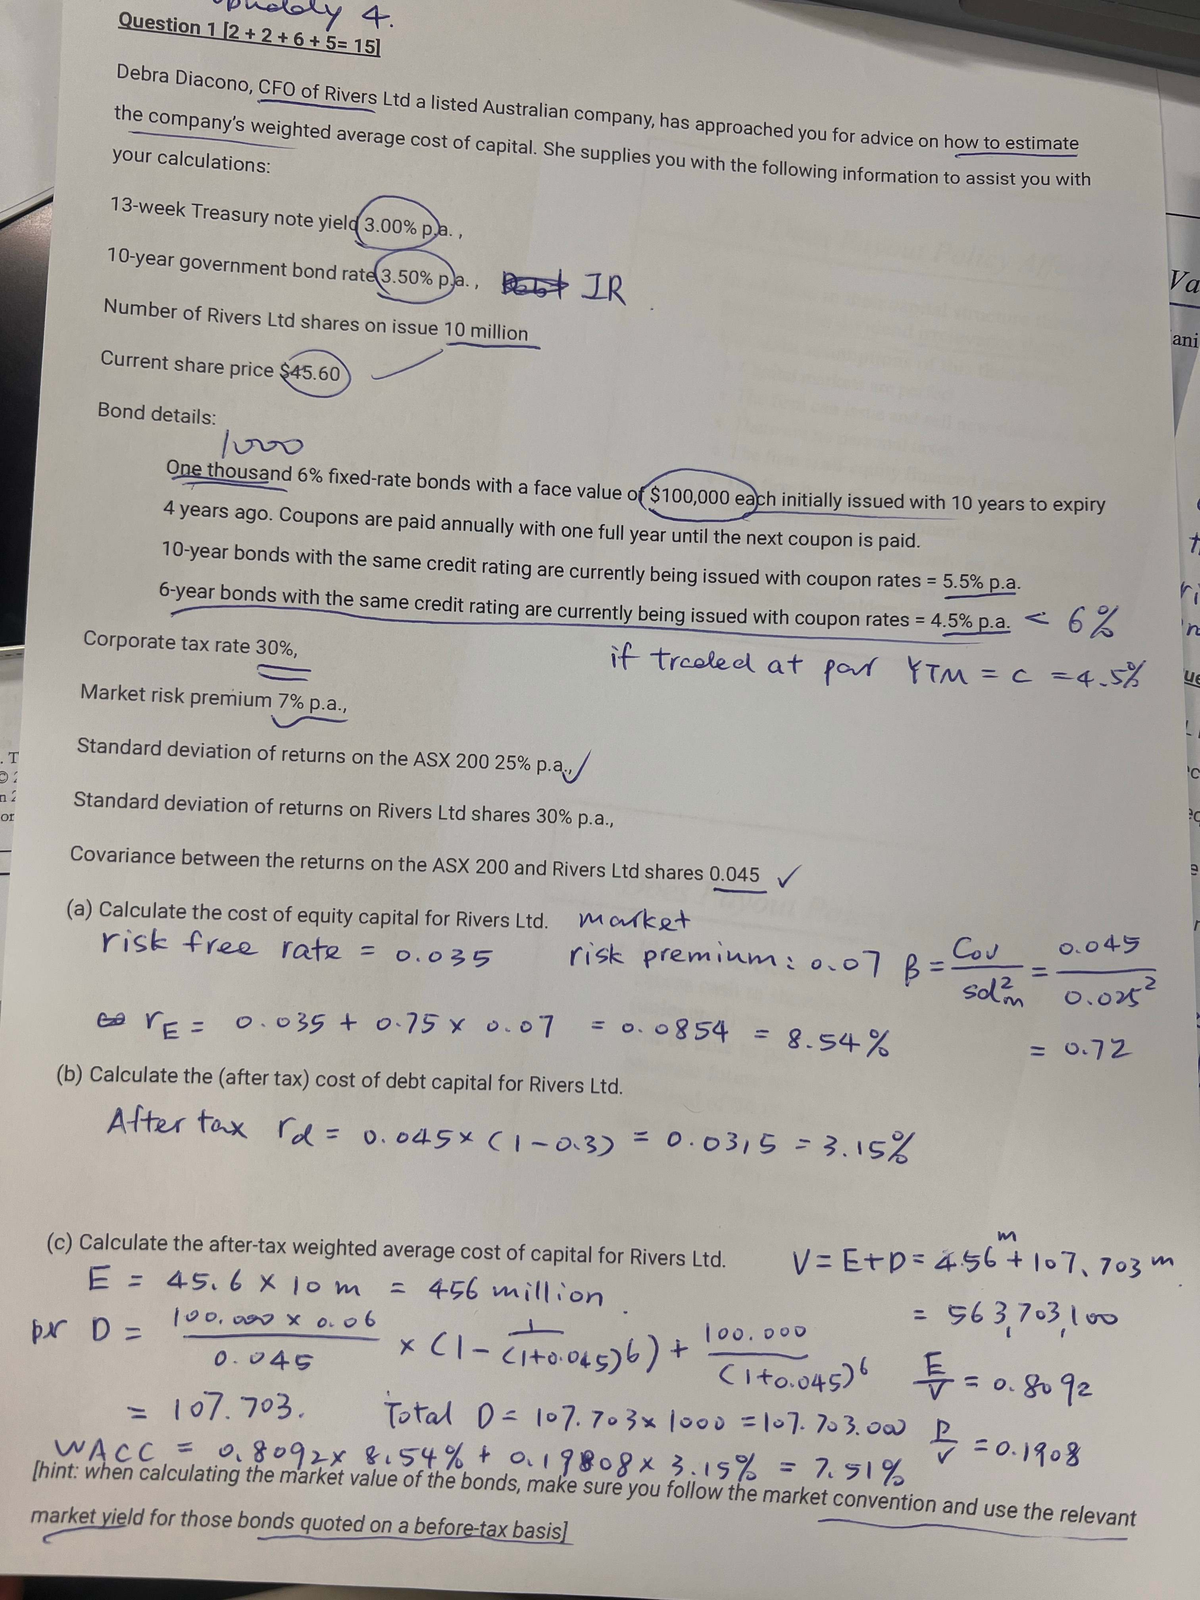 buddy 4.
Question 1 [2 + 2 + 6 + 5= 15]
Debra Diacono, CFO of Rivers Ltd a listed Australian company, has approached you for advice on how to estimate
the company's weighted average cost of capital. She supplies you with the following information to assist you with
your calculations:
13-week Treasury note yield 3.00% p.a. ,
10-year government bond rate 3.50% p.a. , IR
Number of Rivers Ltd shares on issue 10 million
Current share price $45.60
Bond details:
1000
One thousand 6% fixed-rate bonds with a face value of $100,000 each initially issued with 10 years to expiry
4 years ago. Coupons are paid annually with one full year until the next coupon is paid.
10-year bonds with the same credit rating are currently being issued with coupon rates = 5.5% p.a.
6-year bonds with the same credit rating are currently being issued with coupon rates = 4.5% p.a. < 6%
if traded at par YTM = C = 4.5%
Corporate tax rate 30%,
Market risk premium 7% p.a.,
Standard deviation of returns on the ASX 200 25% p.a.,
Standard deviation of returns on Rivers Ltd shares 30% p.a.,
Covariance between the returns on the ASX 200 and Rivers Ltd shares 0.045
(a) Calculate the cost of equity capital for Rivers Ltd. market
risk free rate = 0.035 risk premium: 0.07 β = Cov / sd²m = 0.045 / 0.025²
rE = 0.035 + 0.75 × 0.07 = 0.0854 = 8.54% = 0.72
(b) Calculate the (after tax) cost of debt capital for Rivers Ltd.
After tax rd = 0.045 × (1 - 0.3) = 0.0315 = 3.15%
(c) Calculate the after-tax weighted average cost of capital for Rivers Ltd. V = E + D = 456 m + 107.703 m
E = 45.6 × 10 m = 456 million. = 563,703,100
D = 100.000 × 0.06 / 0.045 × (1 - 1 / (1+0.045)6) + 100.000 / (1+0.045)6 E/V = 0.8092
= 107.703. Total D = 107.703 × 1000 = 107.703.000 D/V = 0.1908
WACC = 0.8092 × 8.54% + 0.19808 × 3.15% = 7.51%
[hint: when calculating the market value of the bonds, make sure you follow the market convention and use the relevant
market yield for those bonds quoted on a before-tax basis]